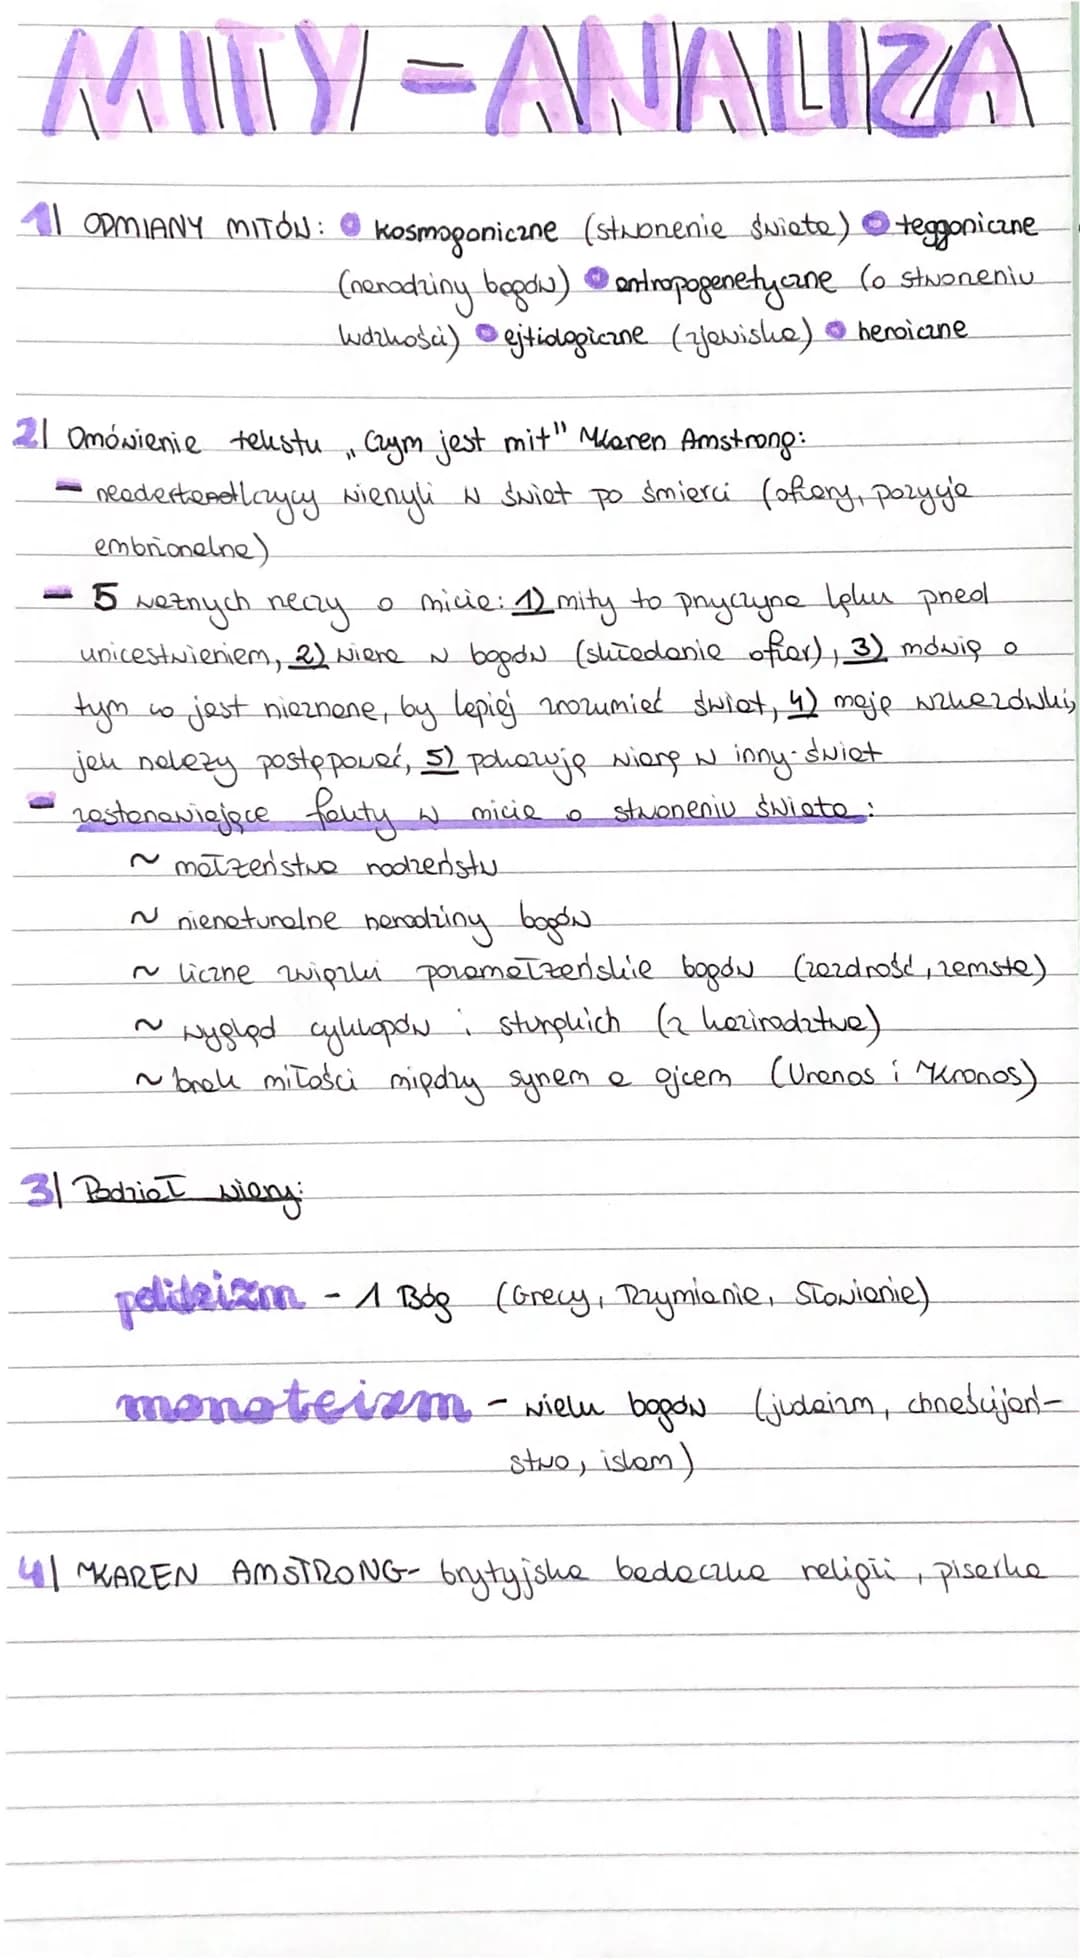 MITY - ANALIZA
1| ODMIANY MITÓW: kosmogoniczne (stworzenie świata) teggoniczne
(narodziny bogów) antropogenetyczne (o stworzeniu
ludzkości) ejtiologiczne (zjawiska) heroiczne
2| Omówienie tekstu „Czym jest mit" Karen Amstrong:
- neadertandlczycy wierzyli w świat po śmierci (ofiary, pozycje
embrionalne)
- 5 ważnych rzeczy o micie: 1) mity to przyczyna lęku przed
unicestwieniem, 2) wiara w bogów (składanie ofiar), 3) mówią o
tym co jest nieznane, by lepiej zrozumieć świat, 4) mają wskazówki,
jak należy postępować, 5) pokazują wiarę w inny świat
- zastanawiające fakty w micie o stworzeniu świata:
~ małżeństwa rodzeństw
~ nienaturalne narodziny bogów
~ liczne związki pozamałżeńskie bogów (zazdrość, zemsta)
~ wygląd cyklopów i sturękich (z kazirodztwa)
~ brak miłości między synem a ojcem (Uranos i Kronos)
3| Podział wiary:
politeizm - 1 Bóg (Grecy, Rzymianie, Słowianie)
monoteizm - wielu bogów (judaizm, chrześcijań-
stwo, islam)
4| KAREN AMSTRONG - brytyjska badaczka religii, pisarka